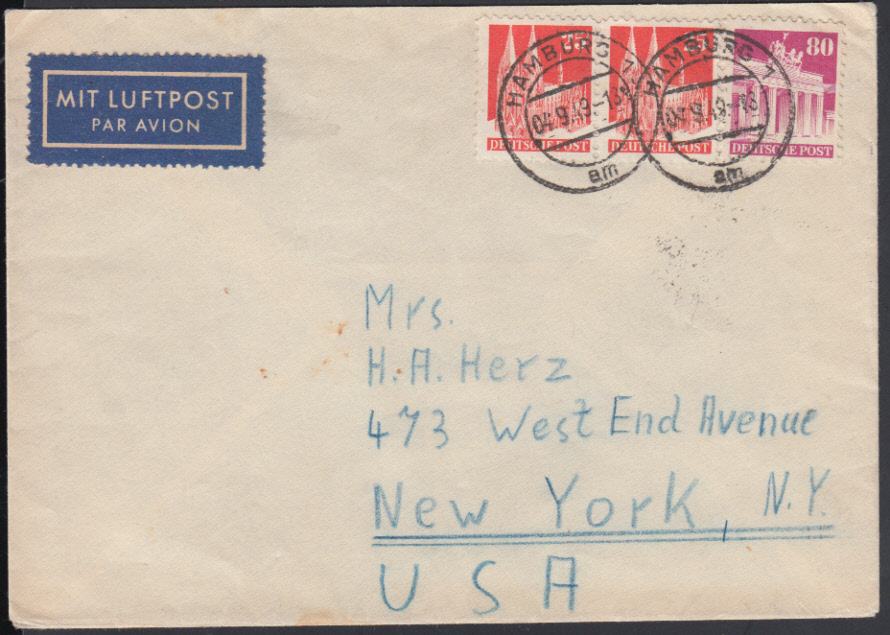 MIT LUFTPOST
PAR AVION
25
80
DEUTSCHE POST
DEUTSCHE POST
DEUTSCHE POST
HAMBURG 7
04.9.49.-13
am
HAMBURG 7
04.9.49.-13
am
Mrs.
H.A. Herz
473 West End Avenue
New York, N.Y.
USA